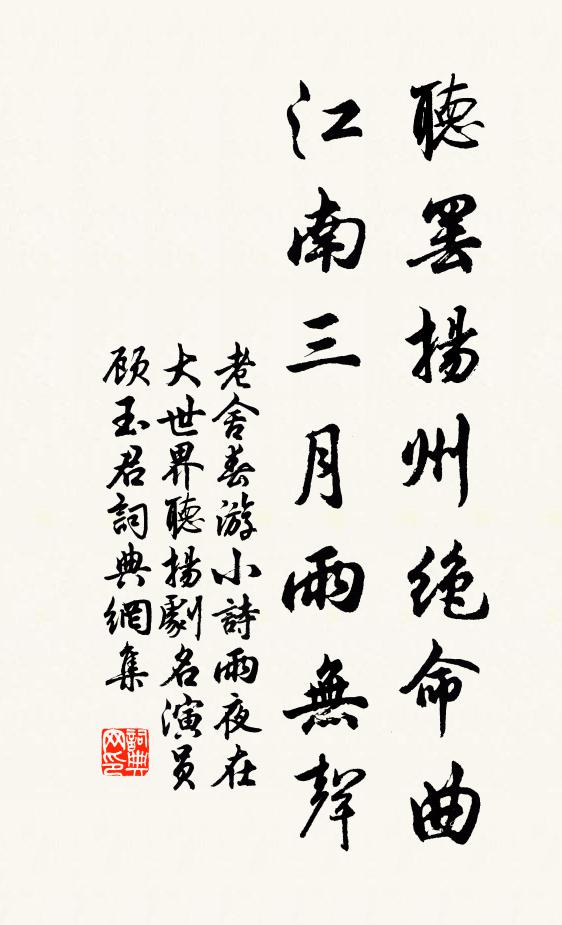 聽罷揚州绝命曲
江南三月雨無聲
老舍春游小詩雨夜在
大世界聽揚劇名演员
顾玉君詞典網集
詞典网印